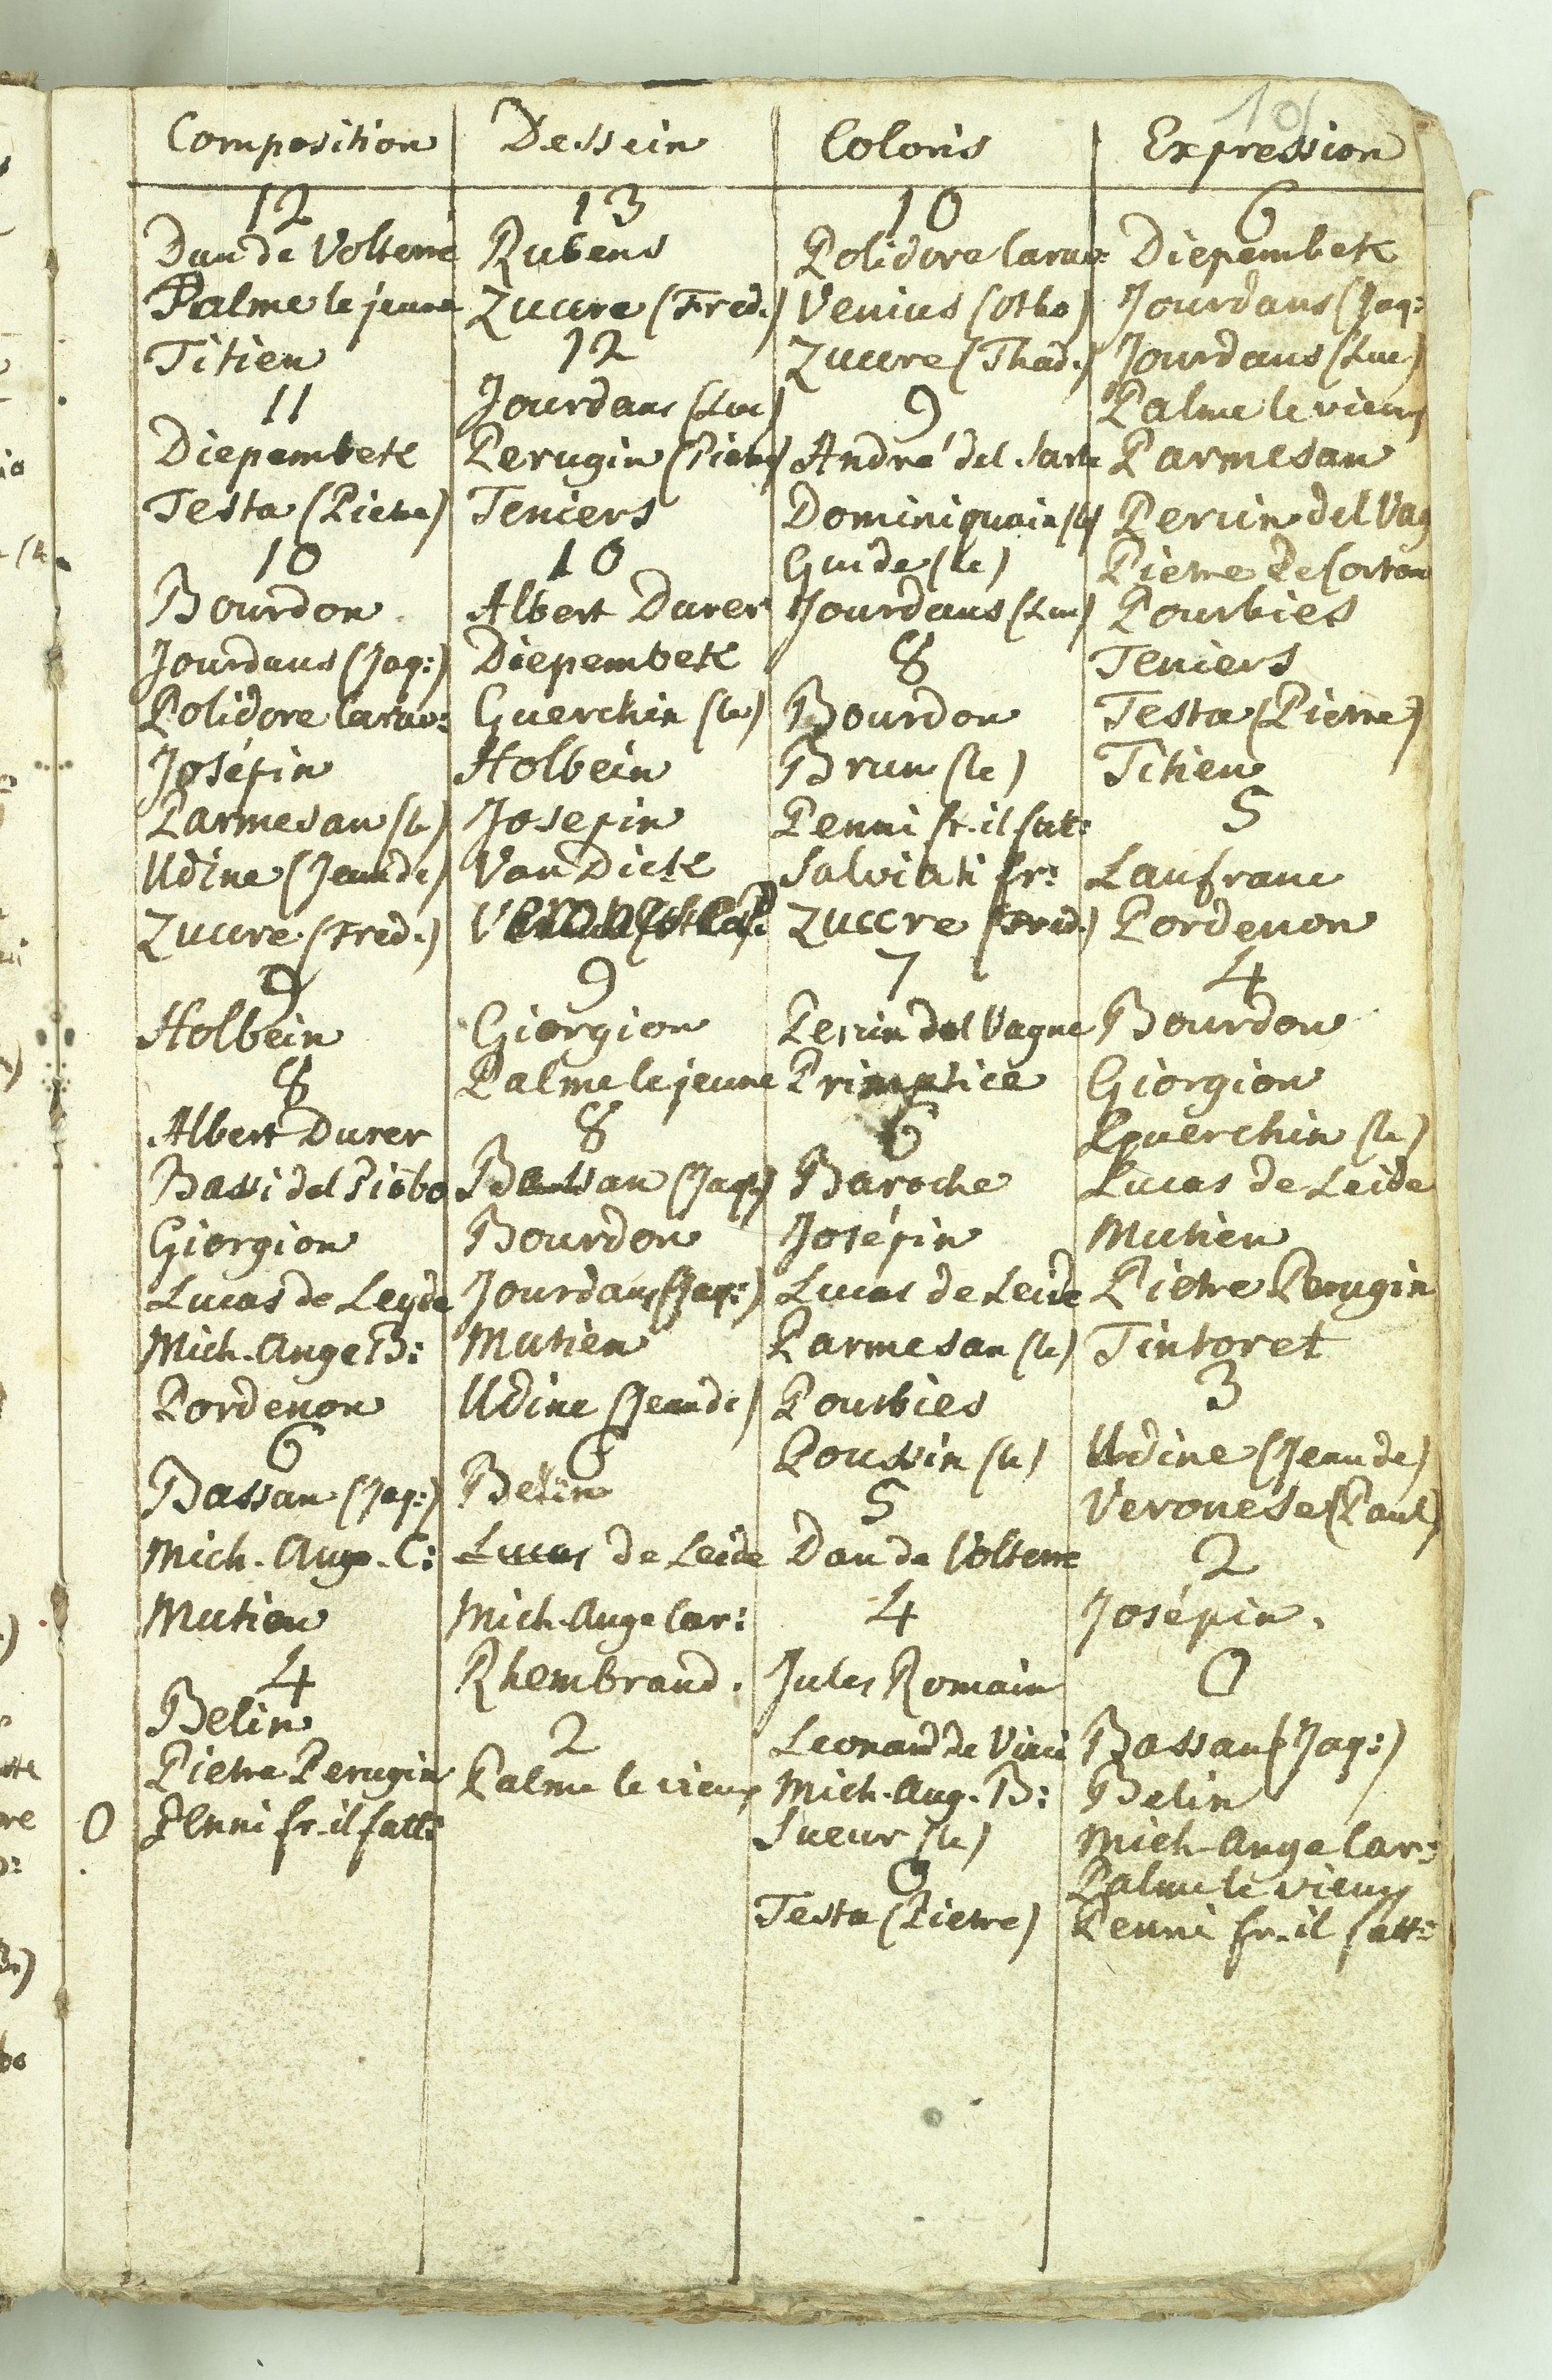 101
Composition
12
Dan de Volterre
Palme le jeune
Titien
11
Diepembeck
Testa (Pietre)
10
Bourdon
Jourdans (Jaq:)
Polidore Carav:
Josépin
Parmesan (le)
Udine (Jean de)
Zuccre (Fred.)
9
Holbein
8
Albert Durer
Bassi del Piobo
Giorgion
Lucas de Leyde
Mich. Ange B:
Pordenon
6
Bassan (Jaq:)
Mich. Ange. C:
Mutien
4
Belin
Pietre Perugin
0 Penni fr. il fatt:
Dessein
13
Rubens
Zuccre (Fred.)
12
Jourdans (Luc)
Perugin (Pietre)
Teniers
10
Albert Durer
Diepembeck
Guerchin (le)
Holbein
Josepin
Van Dick
9
Giorgion
Palme le jeune
8
Bassan (Jaq:)
Bourdon
Jourdans (Jaq:)
Mutien
Udine (Jean de)
6
Belin
Lucas de Leide
Mich. Ange Car:
Rhembrand.
2
Palme le vieux
Coloris
10
Polidore Carav:
Venius (Otho)
Zuccre (Thad.)
9
André del Sarte
Dominiquain (le)
Guide (le)
Jourdans (Luc)
8
Bourdon
Brun (le)
Penni fr. il fat:
Salviati fr:
Zuccre (Fred.)
7
Perrin del Vague
Primatice
6
Baroche
Josépin
Lucas de Leide
Parmesan (le)
Pourbies
Poussin (le)
5
Dan de Volterre
4
Jules Romain
Leonard de Vinci
Mich. Ang. B:
Sueur (le)
0
Testa (Pietre)
Expression
6
Diepembek
Jourdans (Jaq:
Jourdans (Luc)
Palme le vieux
Parmesan
Perrin del Vag
Pietre de Corton
Pourbies
Teniers
Testa (Pietre)
Titien
5
Lanfranc
Pordenon
4
Bourdon
Giorgion
Guerchin (le)
Lucas de Leide
Mutien
Pietre Perugin
Tintoret
3
Udine (Jean de)
Veronese (Paul)
2
Josépin.
0
Bassan (Jaq:)
Belin
Mich. Ange Car:
Palme le vieux
Penni fr. il fatt: